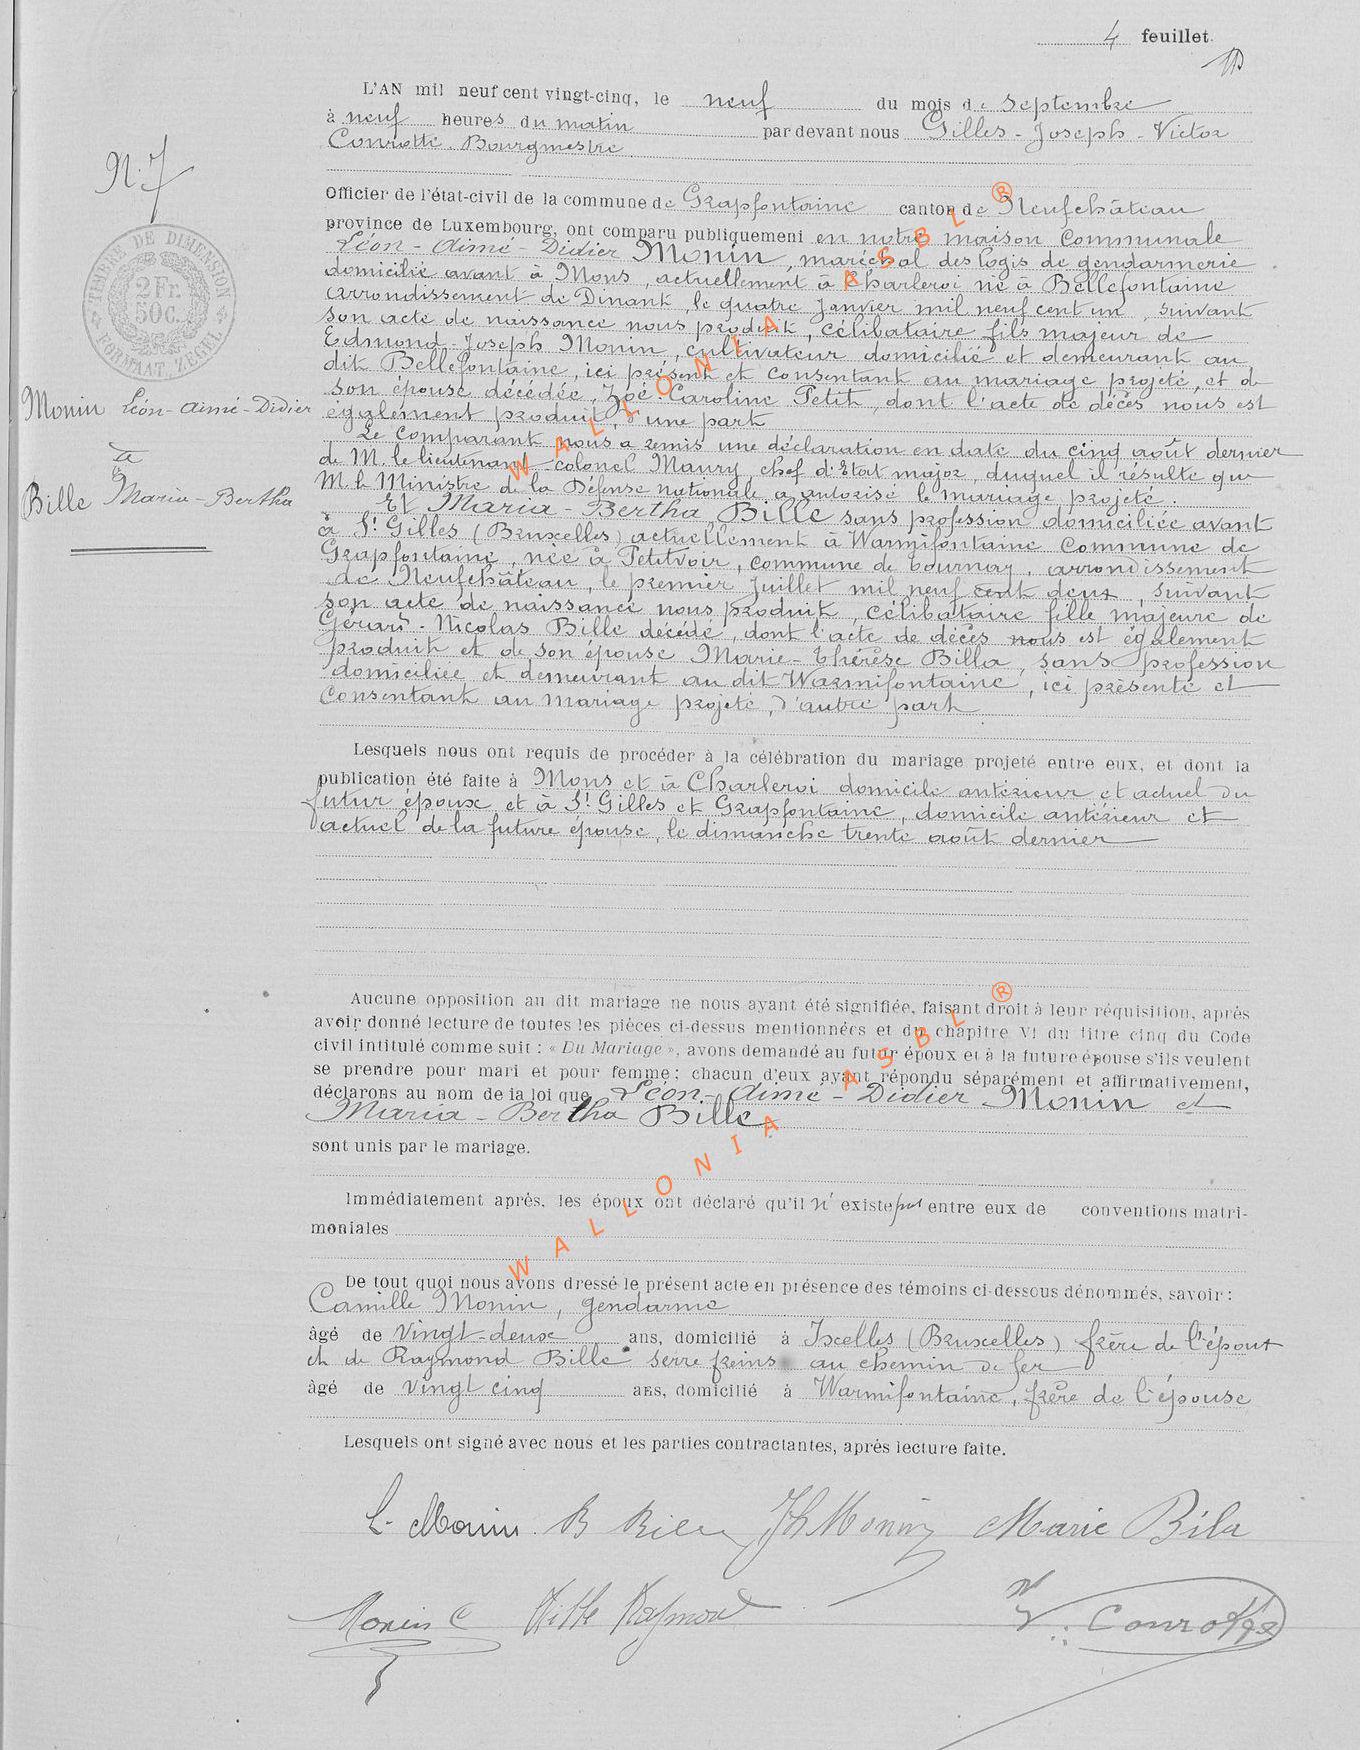 4 feuillet.
L'AN mil neuf cent vingt-cinq, le neuf du mois de septembre
à neuf heures du matin par devant nous Gilles-Joseph-Victor
Conrotte. Bourgmestre
N. 7
Officier de l'état-civil de la commune de Grapfontaine canton de Neufchâteau
province de Luxembourg, ont comparu publiquement en notre maison communale
Léon-Aimé-Didier Monin, maréchal des logis de gendarmerie
domicilié avant à Mons, actuellement à Charleroi né à Bellefontaine
arrondissement de Dinant, le quatre janvier mil neuf cent un, suivant
son acte de naissance nous produit, célibataire fils majeur de
Edmond-Joseph Monin, cultivateur domicilié et demeurant au
dit Bellefontaine, ici présent et consentant au mariage projeté, et de
son épouse décédée, Zoé-Caroline Petit, dont l'acte de décès nous est
également produit, d'une part
Le comparant nous a remis une déclaration en date du cinq août dernier
de M. le lieutenant-colonel Maury, chef d'Etat major, duquel il résulte que
M. le Ministre de la Défense nationale a autorisé le mariage projeté.
Et Maria-Bertha Bille sans profession domiciliée avant
à St Gilles (Bruxelles) actuellement à Warmifontaine commune de
Grapfontaine, née à Petitvoir, commune de Tournay, arrondissement
de Neufchâteau, le premier juillet mil neuf cent deux, suivant
son acte de naissance nous produit, célibataire fille majeure de
Gérard-Nicolas Bille décédé, dont l'acte de décès nous est également
produit et de son épouse Marie-Thérèse Billa, sans profession
domiciliée et demeurant au dit Warmifontaine, ici présente et
consentant au mariage projeté, d'autre part
Monin Léon-Aimé-Didier
à
Bille Maria-Bertha
TIMBRE DE DIMENSION
2 Fr.
50 C.
FORMAAT, ZEGEL
Lesquels nous ont requis de procéder à la célébration du mariage projeté entre eux, et dont la
publication été faite à Mons et à Charleroi domicile antérieur et actuel du
futur époux et à St Gilles et Grapfontaine, domicile antérieur et
actuel de la future épouse, le dimanche trente août dernier
Aucune opposition au dit mariage ne nous ayant été signifiée, faisant droit à leur réquisition, après
avoir donné lecture de toutes les pièces ci-dessus mentionnées et du chapitre VI du titre cinq du Code
civil intitulé comme suit : « Du Mariage », avons demandé au futur époux et à la future épouse s'ils veulent
se prendre pour mari et pour femme; chacun d'eux ayant répondu séparément et affirmativement,
déclarons au nom de la loi que Léon-Aimé-Didier Monin et
Maria-Bertha Bille
sont unis par le mariage.
Immédiatement après, les époux ont déclaré qu'il n'existe pas entre eux de conventions matri-
moniales
De tout quoi nous avons dressé le présent acte en présence des témoins ci-dessous dénommés, savoir :
Camille Monin, gendarme
âgé de vingt-deux ans, domicilié à Ixelles (Bruxelles) frère de l'époux
et de Raymond Bille serre freins au chemin de fer
âgé de vingt cinq ans, domicilié à Warmifontaine, frère de l'épouse
Lesquels ont signé avec nous et les parties contractantes, après lecture faite.
L. Monin B Bille Jh Monin Marie Billa
Monin C Bille Raymond V. Conrotte
WALLONIA ASBL ®
WALLONIA ASBL ®